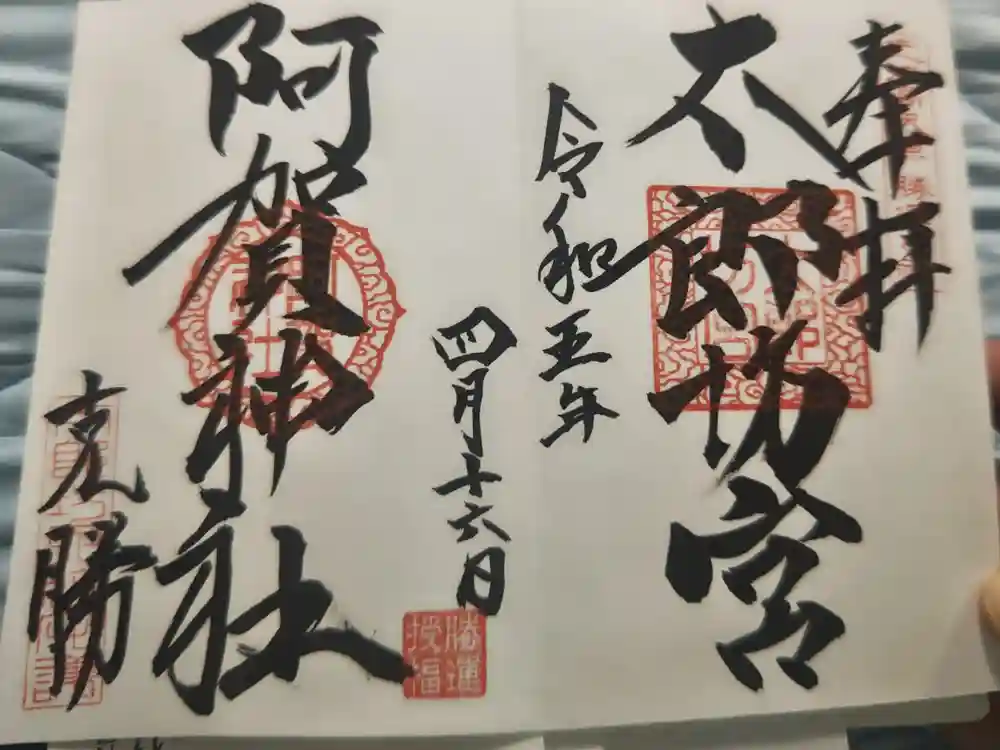 奉拝
太郎坊宮
令和五年
四月十六日
勝運
授福
阿賀神社
克勝